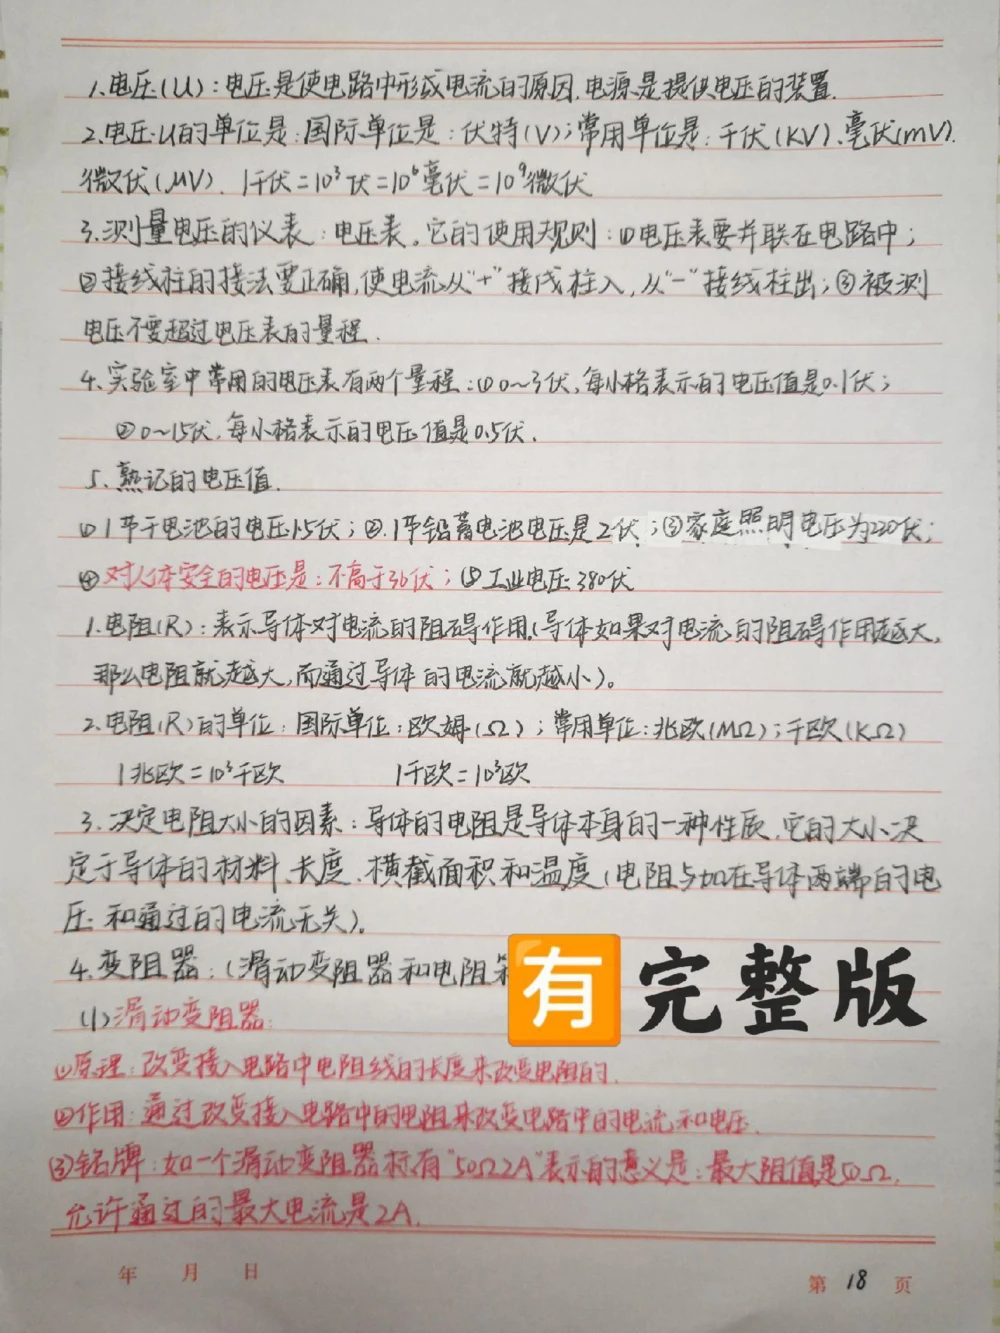 1.电压(U)：电压是使电路中形成电流的原因,电源是提供电压的装置.
2.电压U的单位是：国际单位是：伏特(V)；常用单位是：千伏(KV)、毫伏(mV).
微伏(μV). 1千伏=10³伏=10⁶毫伏=10⁹微伏
3.测量电压的仪表：电压表。它的使用规则：①电压表要并联在电路中；
②接线柱的接法要正确,使电流从"+"接线柱入,从"-"接线柱出；③被测
电压不要超过电压表的量程.
4.实验室中常用的电压表有两个量程：①0~3伏,每小格表示的电压值是0.1伏；
②0~15伏,每小格表示的电压值是0.5伏.
5.熟记的电压值.
①1节干电池的电压1.5伏；②.1节铅蓄电池电压是2伏；③家庭照明电压为220伏；
④对人体安全的电压是：不高于36伏；⑤工业电压380伏
1.电阻(R)：表示导体对电流的阻碍作用.(导体如果对电流的阻碍作用越大,
那么电阻就越大,而通过导体的电流就越小)。
2.电阻(R)的单位：国际单位：欧姆(Ω)；常用单位：兆欧(MΩ)；千欧(KΩ)
1兆欧=10³千欧 1千欧=10³欧
3.决定电阻大小的因素：导体的电阻是导体本身的一种性质,它的大小决
定于导体的材料、长度、横截面积和温度(电阻与加在导体两端的电
压和通过的电流无关)。
4.变阻器：(滑动变阻器和电阻
有 完整版
(1)滑动变阻器：
①原理：改变接入电路中电阻线的长度来改变电阻的.
②作用：通过改变接入电路中的电阻来改变电路中的电流和电压.
③铭牌：如一个滑动变阻器标有"50Ω2A"表示的意义是：最大阻值是50Ω,
允许通过的最大电流是2A.
年 月 日
第 18 页